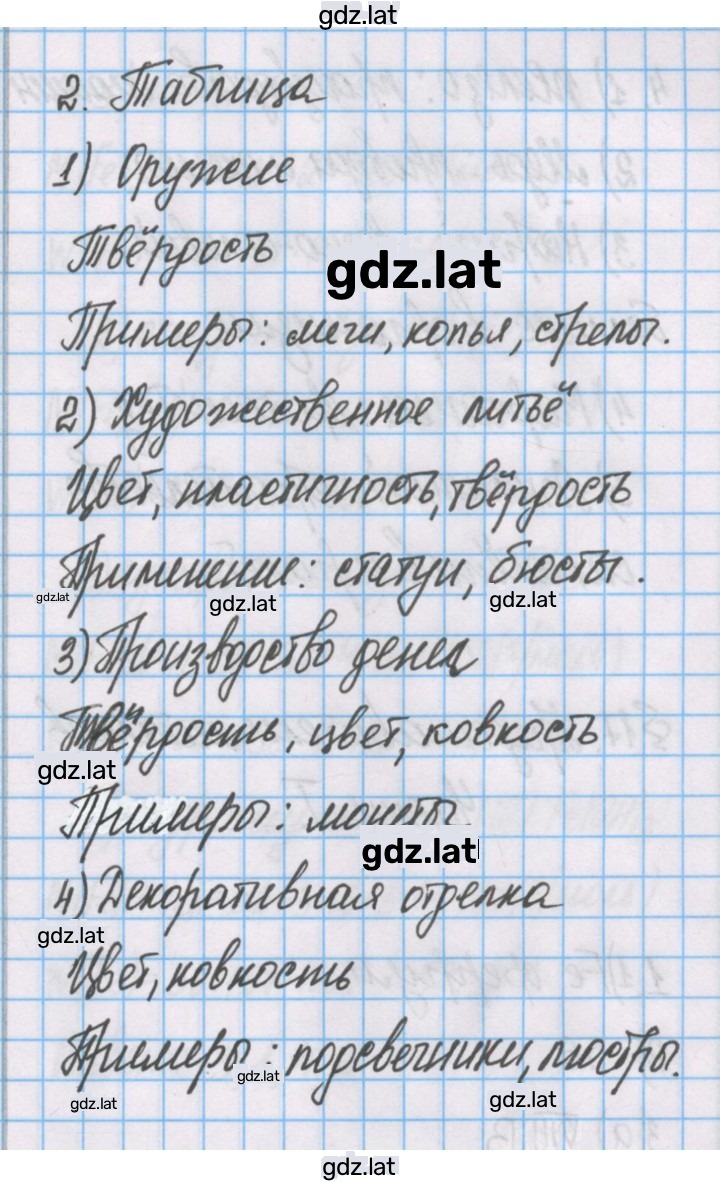 gdz.lat
2. Таблица
1) Оружие
Твёрдость
gdz.lat
Примеры: мечи, копья, стрелы.
2) Художественное литьё
Цвет, пластичность, твёрдость
Применение: статуи, бюсты.
gdz.lat gdz.lat gdz.lat
3) Производство денег
Твёрдость, цвет, ковкость
gdz.lat
Примеры: монеты
gdz.lat
4) Декоративная отделка
gdz.lat
Цвет, ковкость
Примеры: подсвечники, люстры.
gdz.lat
gdz.lat gdz.lat
gdz.lat